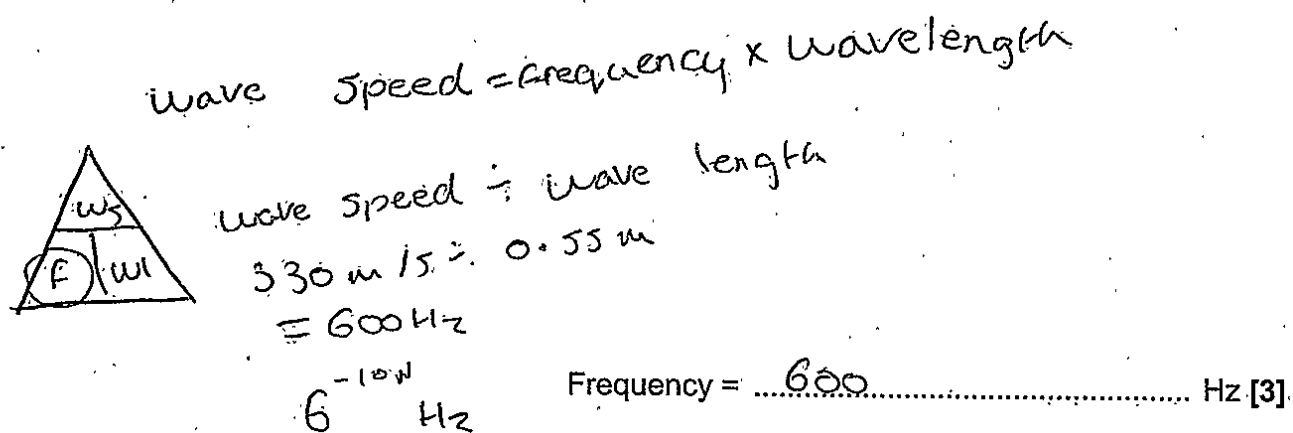 wave speed = frequency x wavelength
ws
F wl
wave speed ÷ wave length
330 m/s ÷ 0.55 m
= 600 Hz
6 Hz
Frequency = 600 Hz [3]